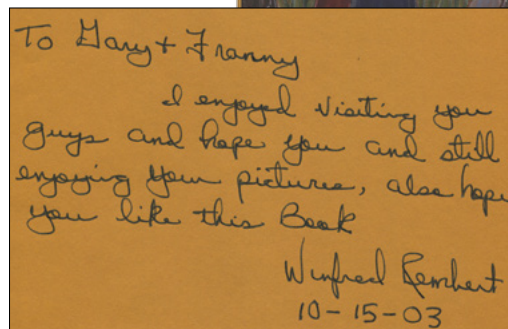 To Gary + Franny
I enjoyed visiting you
guys and hope you and still
enjoying your pictures, also hope
you like this Book
Winfred Rembert
10-15-03